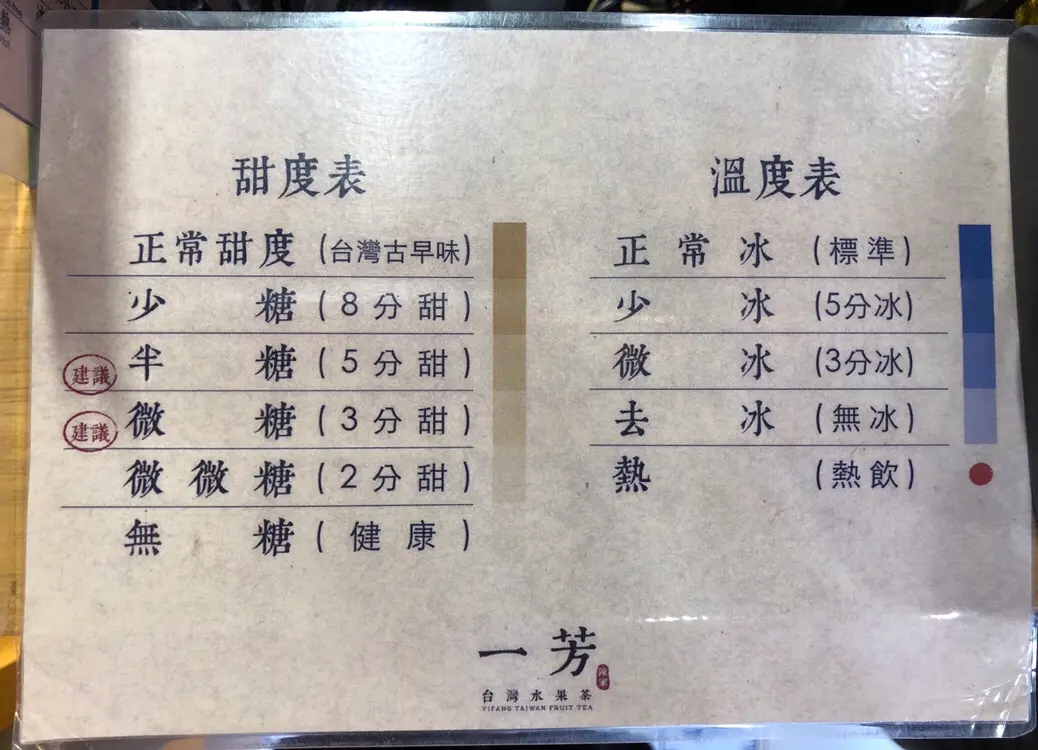 甜度表
正常甜度 (台灣古早味)
少糖 (8分甜)
建議 半糖 (5分甜)
建議 微糖 (3分甜)
微微糖 (2分甜)
無糖 (健康)
溫度表
正常冰 (標準)
少冰 (5分冰)
微冰 (3分冰)
去冰 (無冰)
熱 (熱飲)
一芳
台灣水果茶
YIFANG TAIWAN FRUIT TEA